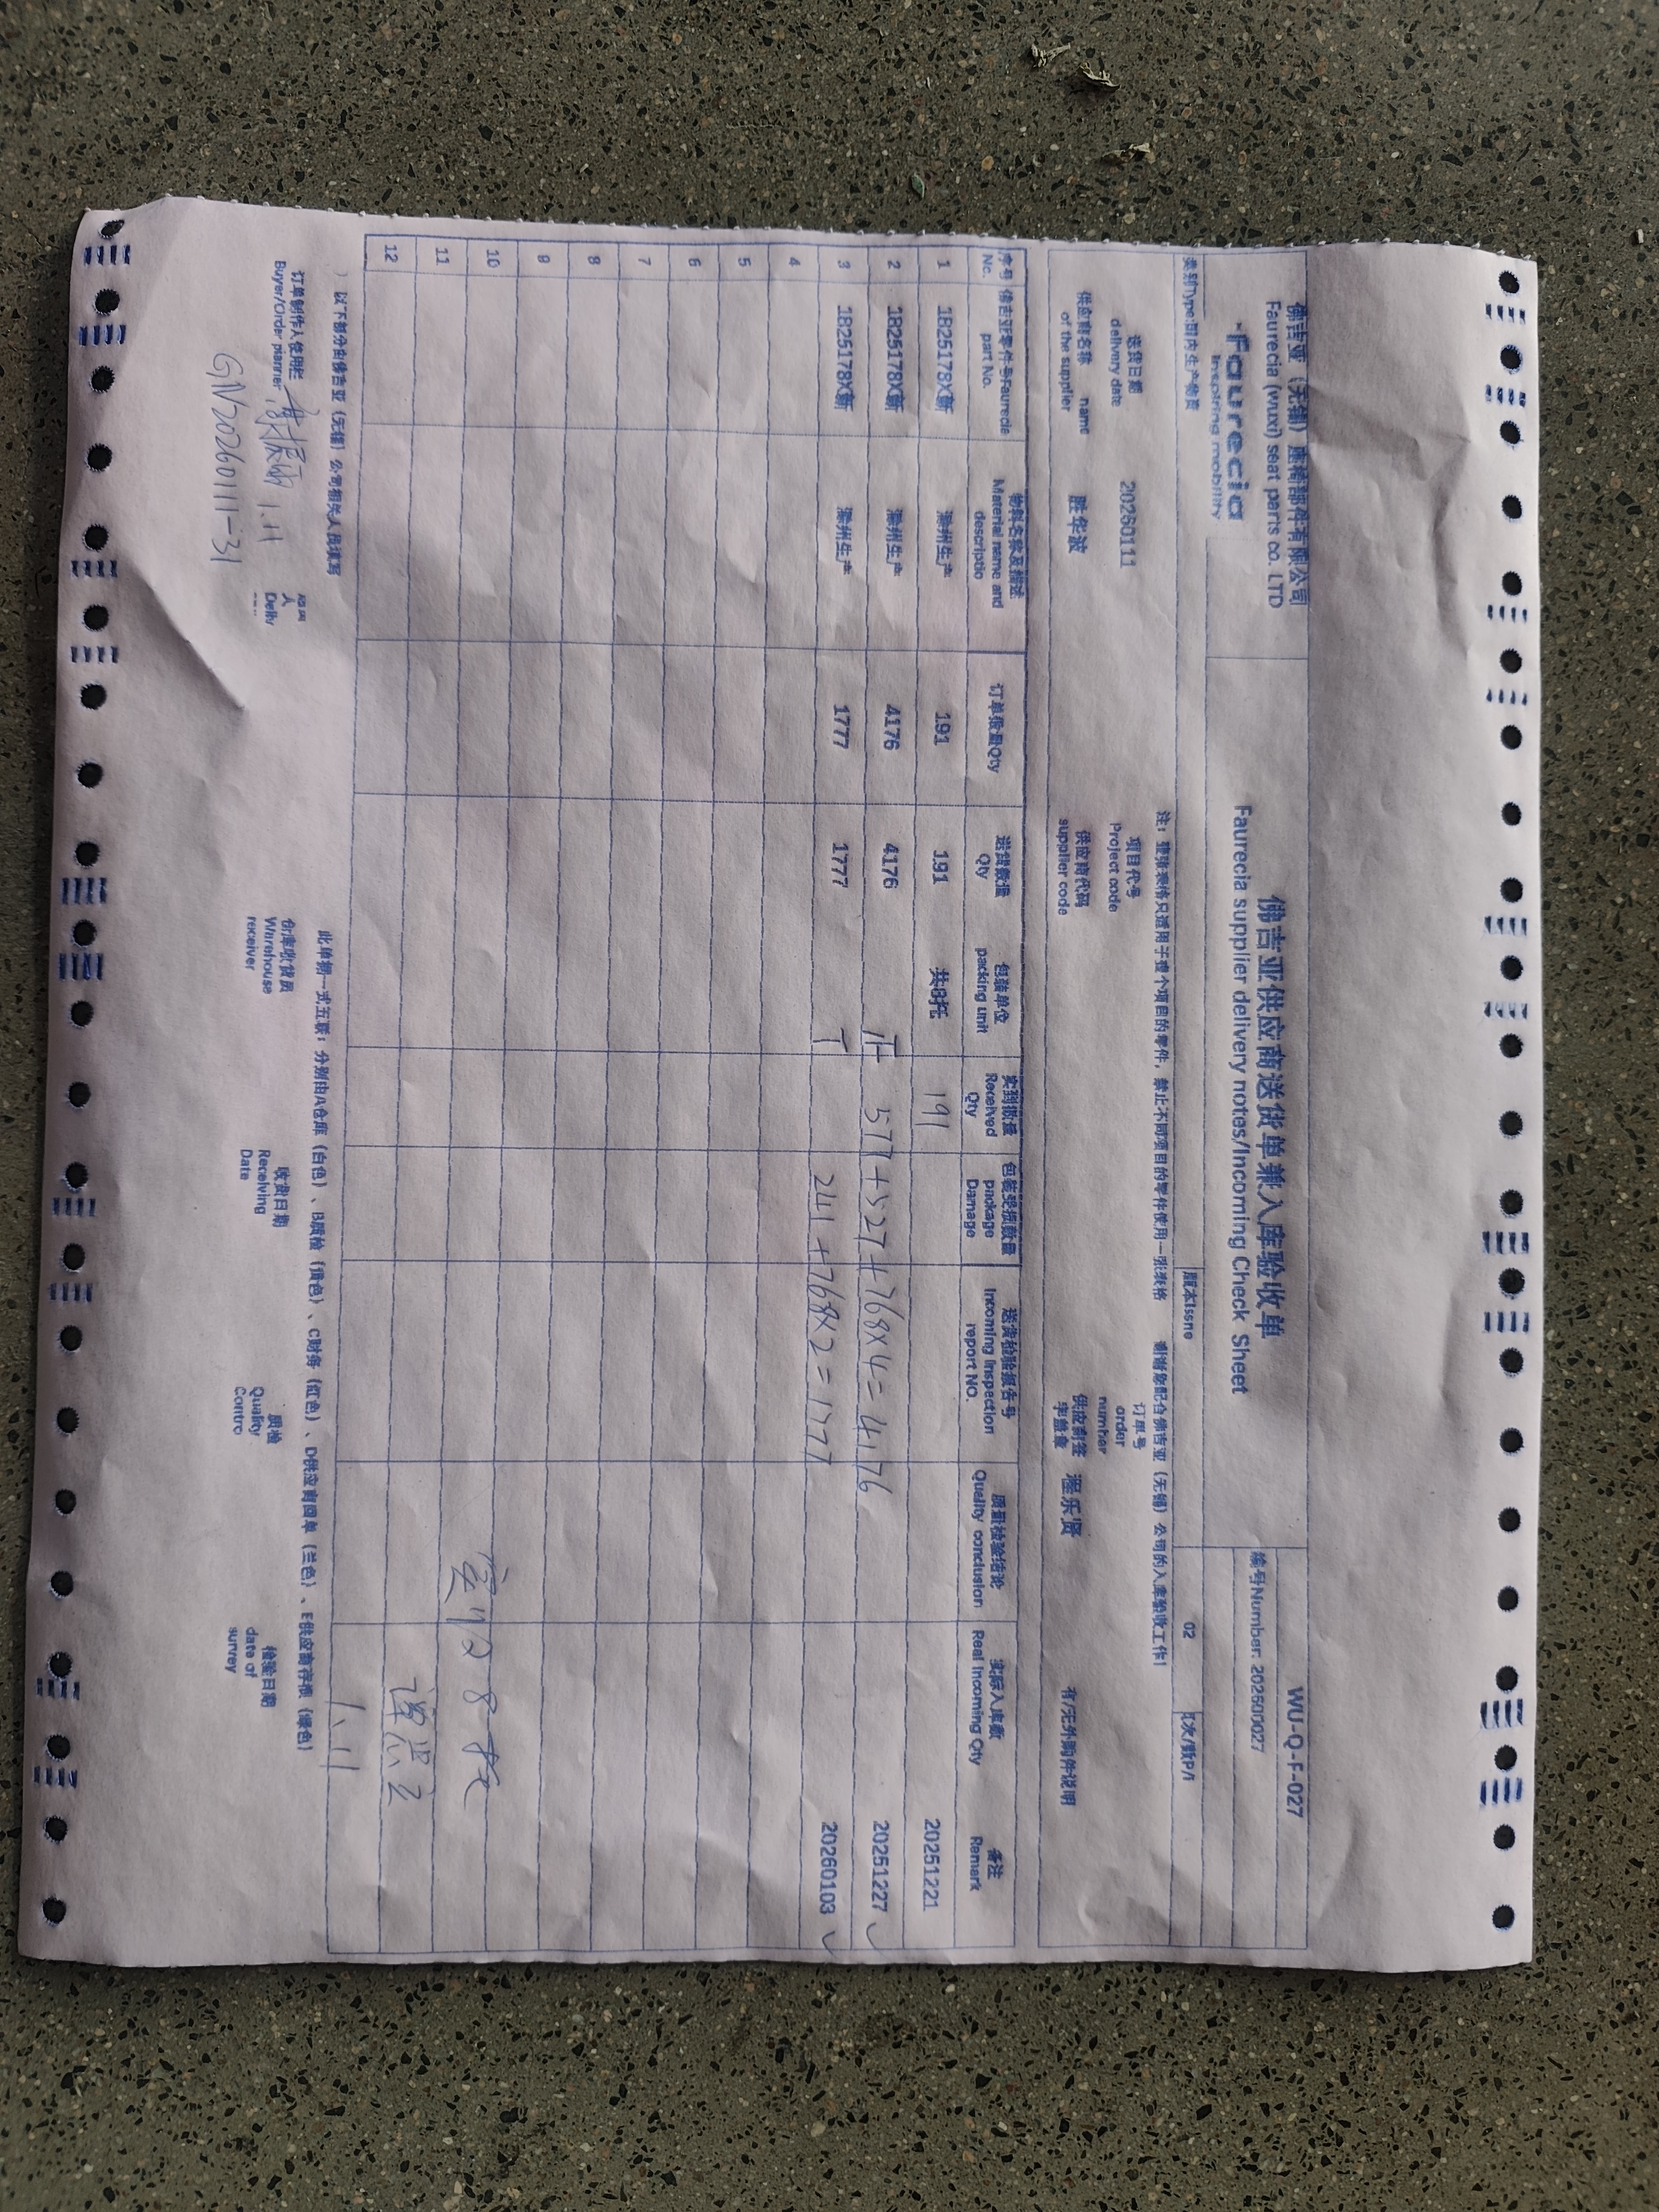 佛吉亚（无锡）座椅部件有限公司
Faurecia (wuxi) seat parts co. LTD
佛吉亚供应商送货单兼入库验收单
Faurecia supplier delivery notes/Incoming Check Sheet
WU-Q-F-027
faurecia
inspiring mobility
编号Number: 202600027
类别Type:国内生产物资
版本Issne
02
页次/数P/n
注：整张表格只适用于整个项目的零件，禁止不同项目的零件使用一张表格 谢谢您配合佛吉亚（无锡）公司的入库验收工作！
送货日期
delivery date
20260111
项目代号
Project code
订单号
order
number
供应商名称 name
of the supplier
胜华波
供应商代码
supplier code
供应商签
字盖章
程乐贤
有/无外购件说明
序号 No. 佛吉亚零件号Faurecia part No. 物料名称及描述 Material name and descriptio 订单数量Qty 送货数量 Qty 包装单位 packing unit 实到数量 Received Qty 包装受损数量 package Damage 送货检验报告号 Incoming Inspection report NO. 质量检验结论 Quality conclusion 实际入库数 Real Incoming Qty 备注 Remark
1 1B25178X新 滁州生产 191 191 共8托 191 20251221
2 1B25178X新 滁州生产 4176 4176 正 577+527+768×4=4176 20251227 ✓
3 1B25178X新 滁州生产 1777 1777 T 241+768×2=1777 20260103 ✓
4
5
6
7
8
9
10 实收8托
11
12 1.11
以下部分由佛吉亚（无锡）公司相关人员填写
此单据一式五联：分别由A仓库（白色）、B质检（黄色）、C财务（红色）、D供应商回单（兰色）、E供应商存根（绿色）
订单制作人使用栏
Buyer/Order planner
1.11
人
Deliv
仓库收货员
Warehouse
receiver
收货日期
Receiving
Date
质检
Quality
Contro
检验日期
date of
survey
GN20260111-31